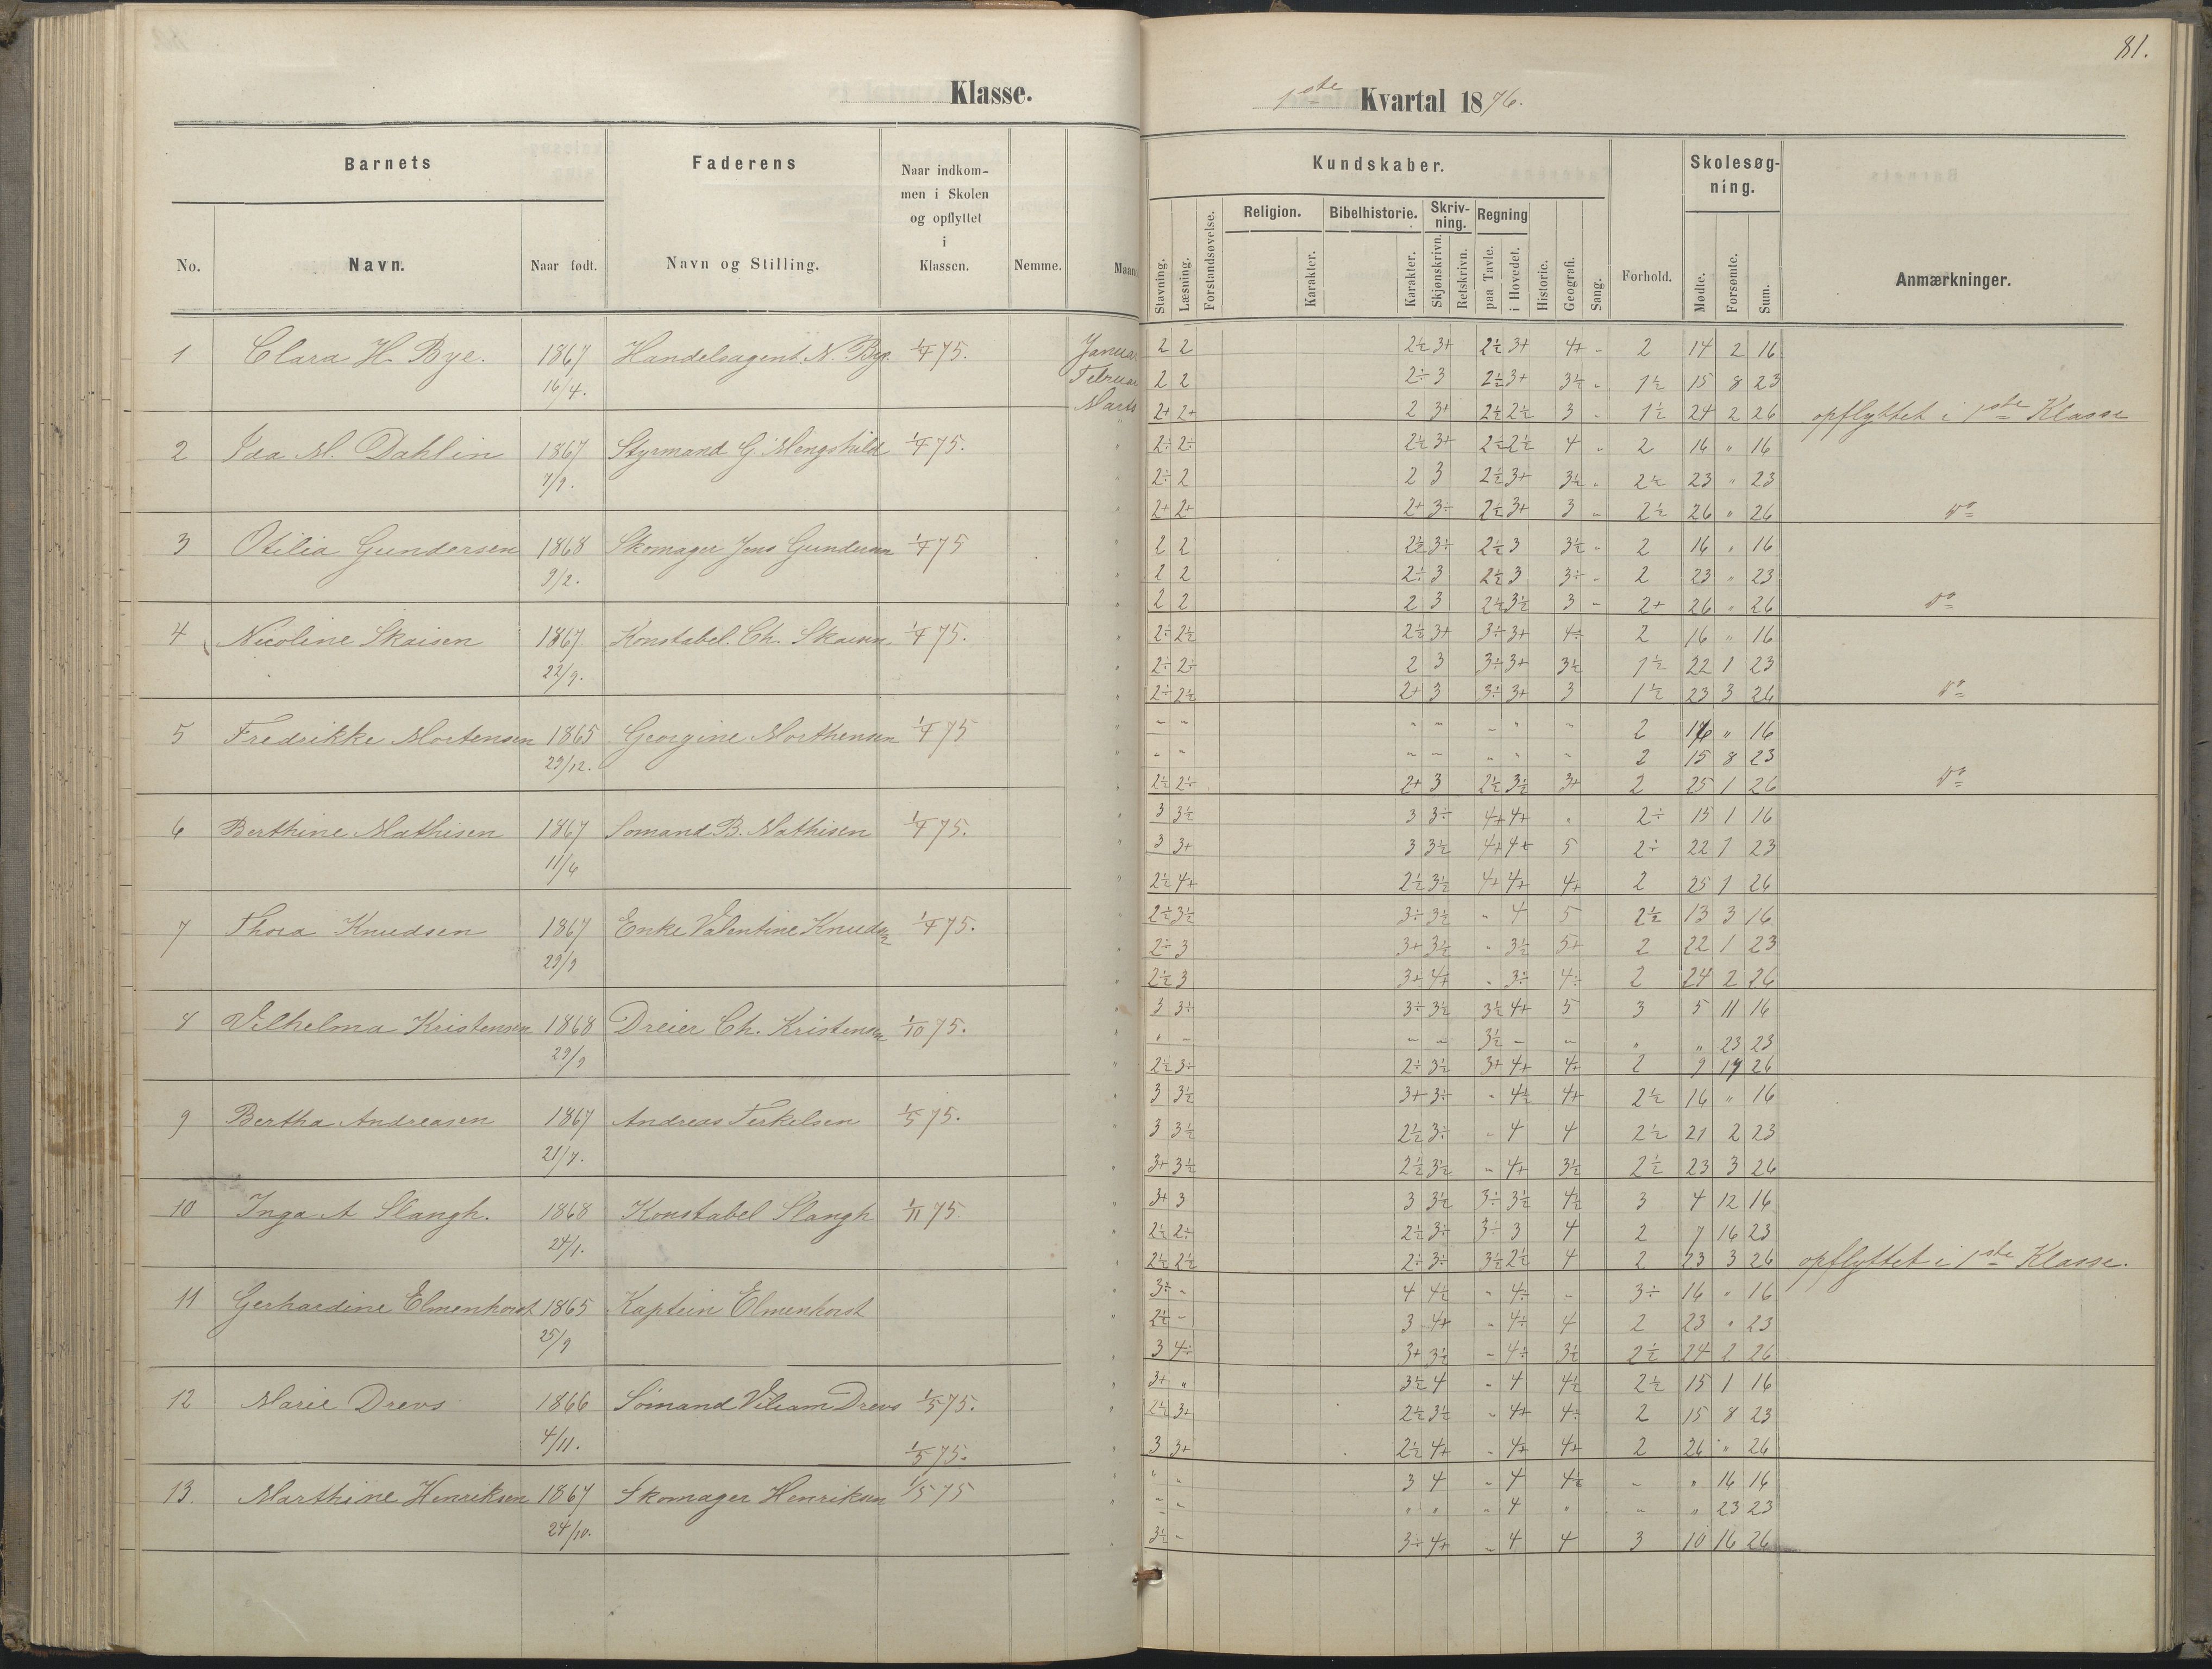 81.
Klasse.
1ste Kvartal 1876.
Barnets
Faderens
Naar indkom-
men i Skolen
og opflyttet
i
Klassen.
No.
Navn.
Naar født.
Navn og Stilling.
Nemme.
Maaned
Kundskaber.
Stavning.
Læsning.
Forstandsøvelse.
Religion.
Karakter.
Bibelhistorie.
Karakter.
Skriv-
ning.
Skjønskrivn.
Retskrivn.
Regning
paa Tavle.
i Hovedet.
Historie.
Geografi.
Sang.
Forhold.
Skolesøg-
ning.
Mødte.
Forsømte.
Sum.
Anmærkninger.
1 Clara H. Bye. 1867 Handelsagent N. Bye 1/4 75. Januar 2 2 2½ 3+ 2½ 3+ 4+ - 2 14 2 16
16/4. Februar 2 2 2÷ 3 2½ 3+ 3½ „ 1½ 15 8 23
Marts 2+ 2+ 2 3+ 2½ 2½ 3 - 1½ 24 2 26 opflyttet i 1ste Klasse
2 Ida M. Dahlin 1867 Styrmand G. Mengshild 1/4 75. „ 2÷ 2÷ 2½ 3+ 2½ 2½ 4 „ 2 16 „ 16
7/9. „ 2÷ 2 2 3 2½ 3+ 3½ „ 2½ 23 „ 23
„ 2+ 2+ 2+ 3÷ 2½ 3+ 3 „ 2½ 26 „ 26 do
3 Otilia Gundersen 1868 Skomager Jens Gundersen 1/4 75 „ 2 2 2½ 3÷ 2½ 3 3½ - 2 16 „ 16
9/2. „ 2 2 2÷ 3 2½ 3 3÷ - 2 23 „ 23
„ 2 2 2 3 2½ 3½ 3 - 2+ 26 „ 26 do
4 Nicoline Skaisen 1867 Konstabel. Ch. Skaisen 1/4 75. „ 2÷ 2½ 2½ 3+ 3÷ 3+ 4÷ 2 16 „ 16
22/9. „ 2÷ 2÷ 2 3 3÷ 3+ 3½ 1½ 22 1 23
„ 2÷ 2½ 2+ 3 3÷ 3+ 3 1½ 23 3 26 do
5 Fredrikke Mortensen 1865 Georgine Morthensen 1/4 75 „ - - „ „ - „ - 2 16 „ 16
29/12. „ - „ „ - „ „ - 2 15 8 23
2½ 2÷ 2+ 3 2½ 3½ 3+ 2 25 1 26 do
6 Berthine Mathisen 1867 Somand B. Mathisen 1/4 75. „ 3 3½ 3 3÷ 4+ 4+ „ 2÷ 15 1 16
11/6 „ 3 3+ 3 3½ 4+ 4+ 5 2÷ 22 1 23
„ 2½ 4+ 2½ 3½ 4+ 4+ 4+ 2 25 1 26
7 Thora Knudsen 1867 Enke Valentine Knudsen 1/4 75. „ 2½ 3½ 3÷ 3½ „ 4 5 2½ 13 3 16
29/9 „ 2÷ 3 3+ 3½ „ 3½ 5+ 2 22 1 23
„ 2½ 3 3+ 4+ „ 3÷ 4÷ 2 24 2 26
8 Vilhelma Kristensen 1868 Dreier Ch. Kristensen 1/10 75. „ 3 3÷ 3÷ 3½ 3½ 4+ 5 3 5 11 16
29/9 „ „ - - - 3½ - - „ „ 23 23
„ 2½ 3÷ 2÷ 3½ 3+ 4+ 4+ 2 9 17 26
9 Bertha Andreasen 1867 Andreas Terkelsen 1/5 75. „ 3 3½ 3+ 3÷ „ 4½ 4+ 2½ 16 „ 16
21/7. „ 3 3½ 2½ 3÷ „ 4 4 2½ 21 2 23
„ 3+ 3½ 2½ 3½ „ 4+ 3½ 2½ 23 3 26
10 Inga A Slangh. 1868 Konstabel Slangh 1/11 75. „ 3+ 3 3 3½ 3÷ 3½ 4½ 3 4 12 16
24/1. „ 2½ 2÷ 2½ 3÷ 3÷ 3 4 2 7 16 23
„ 2½ 2½ 2÷ 3÷ 3½ 2½ 4 2 23 3 26 opflyttet i 1ste Klasse.
11 Gerhardine Elmenhorst 1865 Kaptein Elmenhorst „ 3÷ - 4 4½ „ 4÷ - 3÷ 16 „ 16
25/9 „ 2½ - 3 4+ „ 4÷ 4 2 23 „ 23
„ 3 4÷ 3+ 3½ - 4÷ 3½ 2½ 24 2 26
12 Marie Drevs 1866 Sömand Viliam Drevs 1/5 75. „ 3+ „ 3½ 4 - 4 4½ 2½ 15 1 16
4/11. „ 2½ 3+ 2½ 3½ „ 4+ 4÷ 2 15 8 23
1/5 75. „ 3 3+ 2½ 4+ - 4+ 4+ 2 26 „ 26
13. Marthine Henriksen 1867 Skomager Henriksen 1/5 75 „ „ - 3 4 - 4 4½ - „ 16 16
24/10. „ - - „ „ - 4 „ - „ 23 23
„ 3½ - 3÷ 4+ - 4 4 3 10 16 26